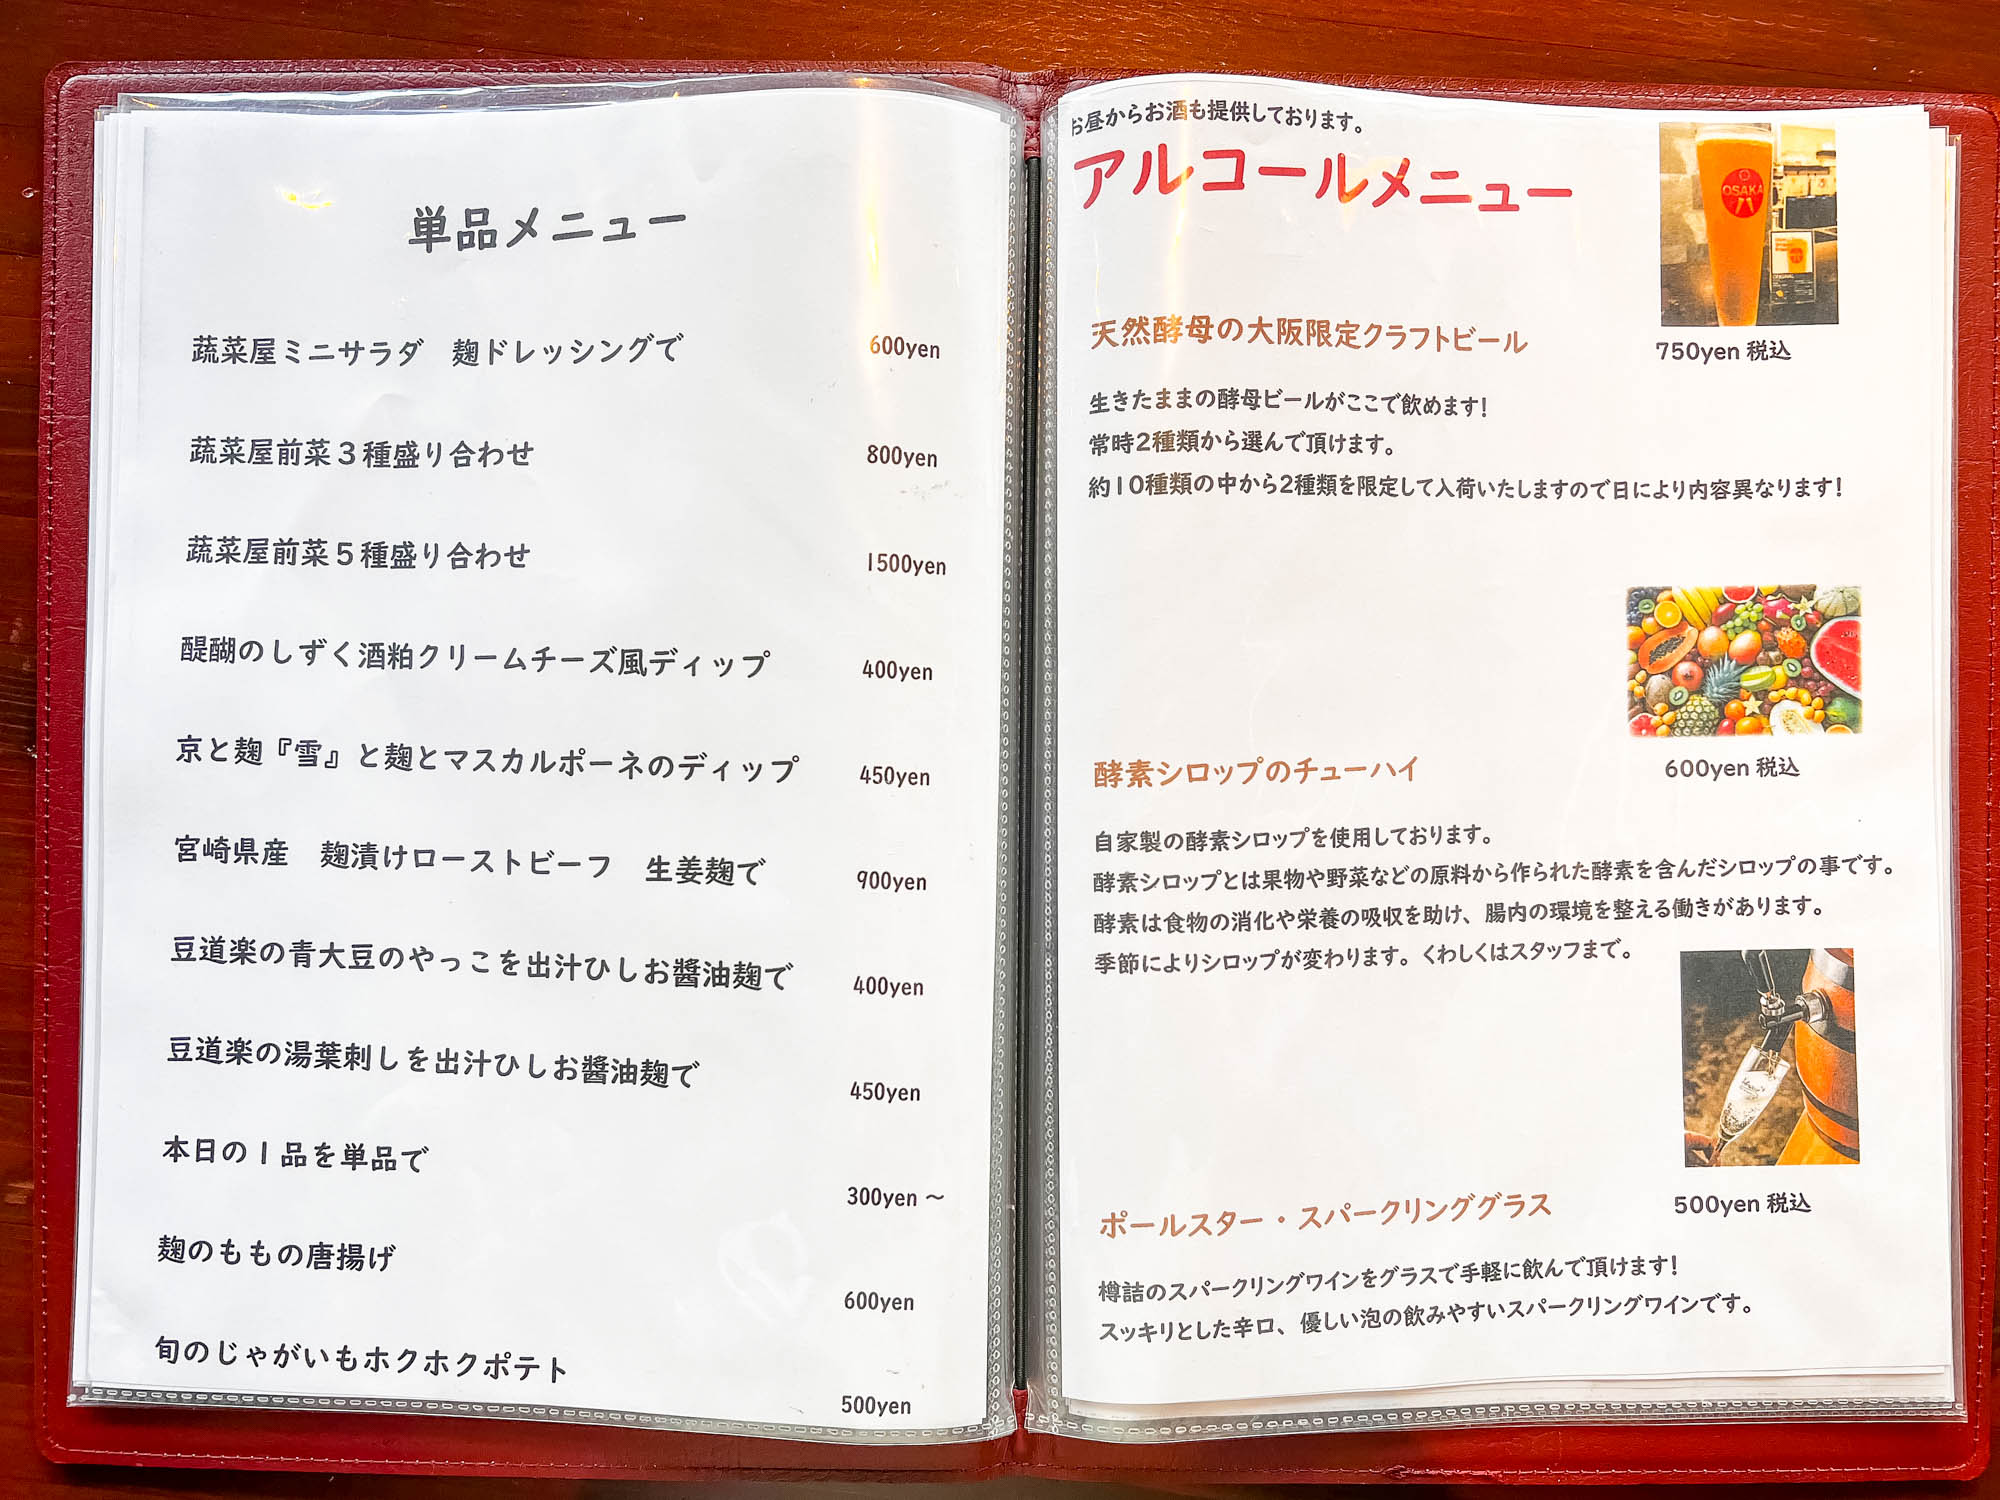 単品メニュー
蔬菜屋ミニサラダ　麹ドレッシングで 600yen
蔬菜屋前菜３種盛り合わせ 800yen
蔬菜屋前菜５種盛り合わせ 1500yen
醍醐のしずく酒粕クリームチーズ風ディップ 400yen
京と麹『雪』と麹とマスカルポーネのディップ 450yen
宮崎県産　麹漬けローストビーフ　生姜麹で 900yen
豆道楽の青大豆のやっこを出汁ひしお醬油麹で 400yen
豆道楽の湯葉刺しを出汁ひしお醬油麹で 450yen
本日の１品を単品で 300yen～
麹のももの唐揚げ 600yen
旬のじゃがいもホクホクポテト 500yen
お昼からお酒も提供しております。
アルコールメニュー
OSAKA
天然酵母の大阪限定クラフトビール 750yen 税込
生きたままの酵母ビールがここで飲めます！
常時2種類から選んで頂けます。
約10種類の中から2種類を限定して入荷いたしますので日により内容異なります！
酵素シロップのチューハイ 600yen 税込
自家製の酵素シロップを使用しております。
酵素シロップとは果物や野菜などの原料から作られた酵素を含んだシロップの事です。
酵素は食物の消化や栄養の吸収を助け、腸内の環境を整える働きがあります。
季節によりシロップが変わります。くわしくはスタッフまで。
ポールスター・スパークリンググラス 500yen 税込
樽詰のスパークリングワインをグラスで手軽に飲んで頂けます！
スッキリとした辛口、優しい泡の飲みやすいスパークリングワインです。